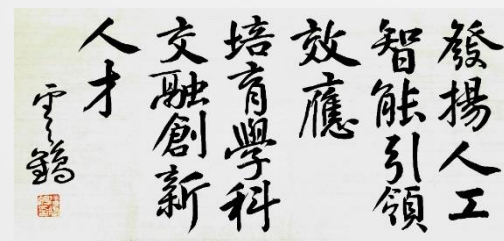 發揚人工
智能引領
效應
培育學科
交融創新
人才
雲鶴